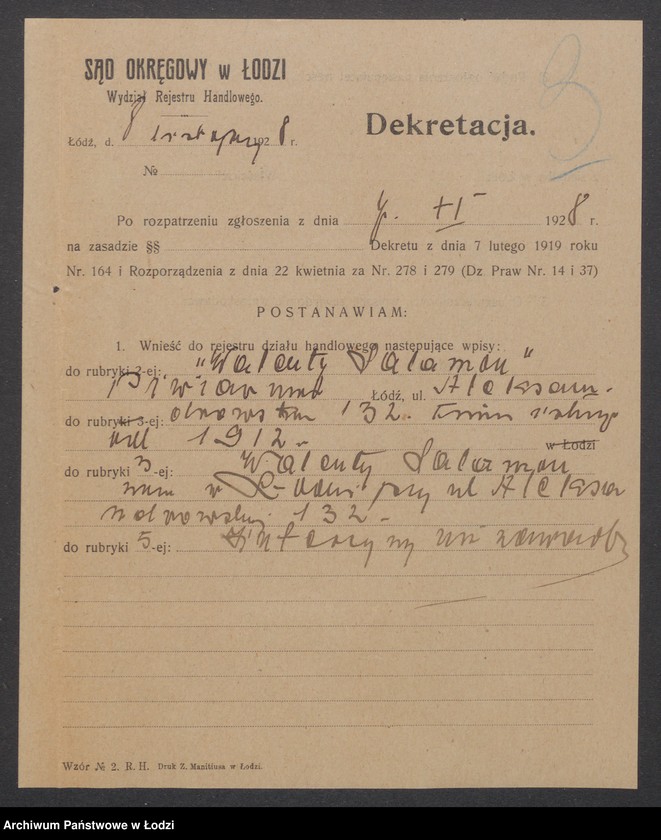 3
SĄD OKRĘGOWY w ŁODZI
Wydział Rejestru Handlowego.
Łódź, d. 8 listopada 1928 r.
№
Dekretacja.
Po rozpatrzeniu zgłoszenia z dnia XI 1928 r.
na zasadzie §§ Dekretu z dnia 7 lutego 1919 roku
Nr. 164 i Rozporządzenia z dnia 22 kwietnia za Nr. 278 i 279 (Dz Praw Nr. 14 i 37)
POSTANAWIAM:
1. Wnieść do rejestru działu handlowego następujące wpisy:
do rubryki 2-ej: "Walenty Salamon"
Piwiarnia Łódź, ul. Aleksan-
do rubryki 3-ej: drowska 132. istnieje
od 1912.- w Łodzi
do rubryki 3-ej: Walenty Salamon
zam w Łodzi przy ul Aleksa
ndrowskiej 132.-
do rubryki 5-ej: Intercyzy nie zawarł
Wzór № 2. R. H. Druk Z. Manitiusa w Łodzi.
Archiwum Państwowe w Łodzi